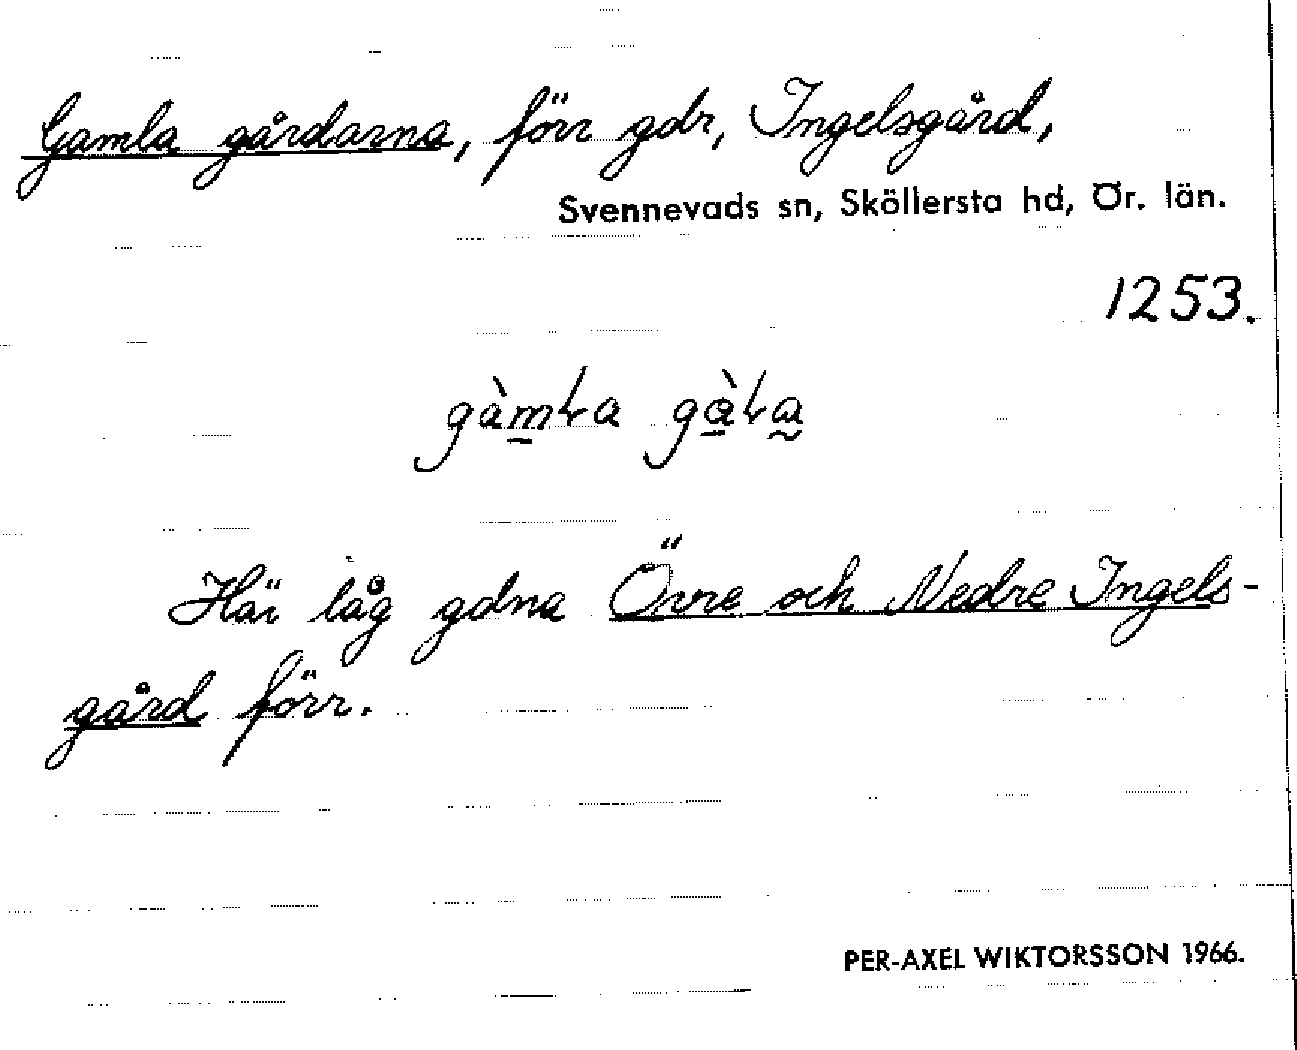 Gamla gårdarna, förr gdr, Ingelsgård,
Svennevads sn, Sköllersta hd, Ör. län.
1253.
Här låg gdna Övre och Nedre Ingels-
gård förr.
PER-AXEL WIKTORSSON 1966.